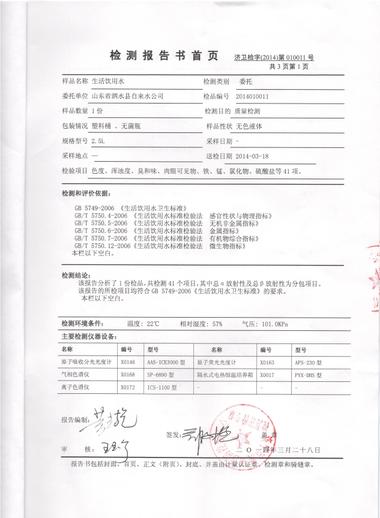 检测报告书首页 济卫检字(2014)第 010011 号
共 3 页第 1 页
样品名称 生活饮用水 检测类别 委托
委托单位 山东省泗水县自来水公司 检品编号 2014010011
样品数量 1份 检测目的 质量检测
包装情况 塑料桶、无菌瓶 样品性状 无色液体
规格型号 2.5L 采样日期 -
采样地点 — 送检日期 2014-03-18
检验项目 色度、浑浊度、臭和味、肉眼可见物、铁、锰、氯化物、硫酸盐等 41 项。
检测和评价依据:
GB 5749-2006 《生活饮用水卫生标准》
GB/T 5750.4-2006 《生活饮用水标准检验法 感官性状与物理指标》
GB/T 5750.5-2006 《生活饮用水标准检验法 无机非金属指标》
GB/T 5750.6-2006 《生活饮用水标准检验法 金属指标》
GB/T 5750.7-2006 《生活饮用水标准检验法 有机物综合指标》
GB/T 5750.12-2006《生活饮用水标准检验法 微生物指标》
本栏以下空白。
检测结论:
该报告分析了 1 份检品,共检测 41 个项目,其中总 α 放射性及总 β 放射性为分包项目。
该报告的所检项目均符合 GB 5749-2006《生活饮用水卫生标准》的要求。
本栏以下空白。
检测环境条件: 温度: 22℃ 相对湿度: 57% 气压: 101.0KPa
主要检测仪器设备:
名称 编号 型号 名称 编号 型号
原子吸收分光光度计 X0146 AAS-ICE3000 型 原子荧光光度计 X0163 AFS-230 型
气相色谱仪 X0168 SP-6890 型 隔水式电热恒温培养箱 X0017 PYX-DHS 型
离子色谱仪 X0172 ICS-1100 型 - - -
报告编制:
签发: 盖章
审 核: 二〇一四年三月二十八日
报告书包括封面、首页、正文(附页)、封底、并盖由计量认证章、检测章和骑缝章。